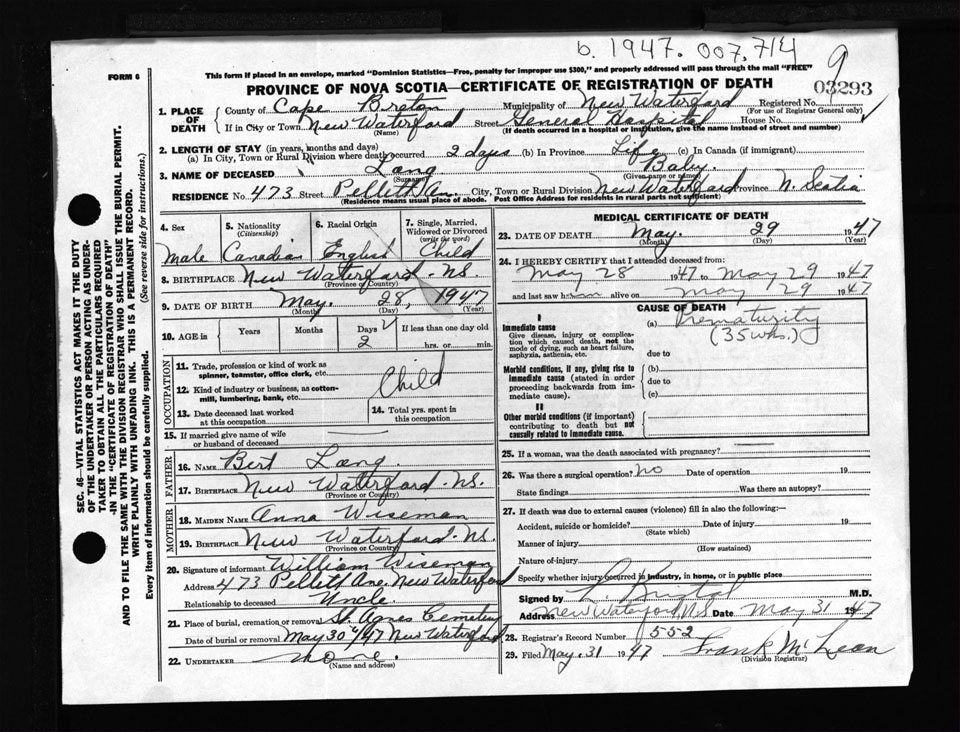 b. 1947. 007,714
9
FORM 6
This form if placed in an envelope, marked "Dominion Statistics—Free, penalty for improper use $300," and properly addressed will pass through the mail "FREE"
03293
PROVINCE OF NOVA SCOTIA—CERTIFICATE OF REGISTRATION OF DEATH
1. PLACE OF DEATH
County of Cape Breton Municipality of New Waterford Registered No.
(For use of Registrar General only)
If in City or Town New Waterford Street General Hospital House No.
(Name) (If death occurred in a hospital or institution, give the name instead of street and number)
2. LENGTH OF STAY (in years, months and days)
(a) In City, Town or Rural Division where death occurred 2 days (b) In Province Life (c) In Canada (if immigrant)
3. NAME OF DECEASED Lang Baby.
(Surname) (Given name or names)
RESIDENCE No. 473 Street City, Town or Rural Division New Waterford Province N. Scotia
(Residence means usual place of abode. Post Office Address for residents in rural parts not sufficient)
4. Sex
Male
5. Nationality
(Citizenship)
Canadian
6. Racial Origin
English
7. Single, Married, Widowed or Divorced
(write the word)
Child
8. BIRTHPLACE New Waterford - NS.
(Province or Country)
9. DATE OF BIRTH May. 28, 1947
(Month) (Day) (Year)
10. AGE in
Years Months Days If less than one day old
2 hrs. or min.
OCCUPATION
11. Trade, profession or kind of work as spinner, teamster, office clerk, etc.
12. Kind of industry or business, as cotton-mill, lumbering, bank, etc.
Child
13. Date deceased last worked at this occupation
14. Total yrs. spent in this occupation
15. If married give name of wife or husband of deceased
FATHER
16. NAME Bert Lang.
17. BIRTHPLACE New Waterford - NS.
(Province or Country)
MOTHER
18. MAIDEN NAME Anna Wiseman
19. BIRTHPLACE New Waterford - NS.
(Province or Country)
20. Signature of informant William Wiseman
Address 473 Ave. New Waterford
Relationship to deceased Uncle.
21. Place of burial, cremation or removal St. Agnes Cemetery
Date of burial or removal May 30/47 New Waterford
22. UNDERTAKER none.
(Name and address)
MEDICAL CERTIFICATE OF DEATH
23. DATE OF DEATH May. 29 1947
(Month) (Day) (Year)
24. I HEREBY CERTIFY that I attended deceased from:
May 28 1947 to May 29 1947
and last saw him alive on May 29 1947
CAUSE OF DEATH
I
Immediate cause
Give disease, injury or complication which caused death, not the mode of dying, such as heart failure, asphyxia, asthenia, etc.
(a) Prematurity
(35 wks.)
due to
Morbid conditions, if any, giving rise to immediate cause (stated in order proceeding backwards from immediate cause).
(b)
due to
(c)
II
Other morbid conditions (if important) contributing to death but not causally related to immediate cause.
25. If a woman, was the death associated with pregnancy?
26. Was there a surgical operation? no Date of operation 19
State findings Was there an autopsy?
27. If death was due to external causes (violence) fill in also the following:—
Accident, suicide or homicide? Date of injury 19
(State which)
Manner of injury
(How sustained)
Nature of injury
Specify whether injury occurred in industry, in home, or in public place
Signed by M.D.
Address New Waterford NS Date May 31 1947
28. Registrar's Record Number 552
29. Filed May. 31 1947 Frank McLean
(Division Registrar)
SEC. 46—VITAL STATISTICS ACT MAKES IT THE DUTY
OF THE UNDERTAKER OR PERSON ACTING AS UNDER-
TAKER TO OBTAIN ALL THE PARTICULARS REQUIRED
IN THE "CERTIFICATE OF REGISTRATION OF DEATH"
AND TO FILE THE SAME WITH THE DIVISION REGISTRAR WHO SHALL ISSUE THE BURIAL PERMIT.
WRITE PLAINLY WITH UNFADING INK. THIS IS A PERMANENT RECORD.
Every item of information should be carefully supplied. (See reverse side for instructions.)